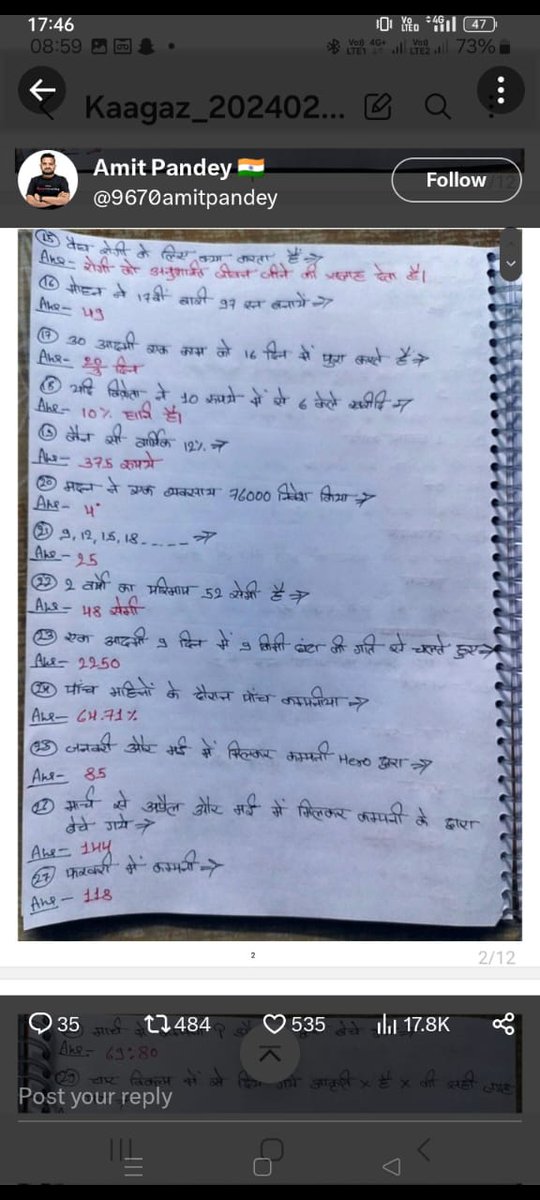 17:46
Vo) LTEO 4G 47
08:59
Vo)) LTE1 4G+ Vo)) LTE2 73%
Kaagaz_202402...
Amit Pandey 🇮🇳
@9670amitpandey
Follow
/12
(15) वैद्य रोगी के लिए क्या करता है →
Ans- रोगी को अनुशासित जीवन जीने की सलाह देता है।
(16) मोहन ने 17वीं बारी 97 रन बनाये →
Ans- 49
(17) 30 आदमी एक काम को 16 दिन में पुरा करते है →
Ans- दिन
(18) यदि विक्रेता ने 10 रूपये में से 6 केले खरीदे →
Ans- 10% हानि है।
कौन सी वार्षिक 12% →
Ans- 375 रूपये
(20) मदन ने एक व्यवसाय 76000 निवेश किया →
Ans- 4
(21) 9, 12, 15, 18 _ _ _ _ _ →
Ans- 25
(22) 2 वर्गो का परिमाप 52 सेमी है →
Ans- 48 सेमी
(23) एक आदमी 9 दिन में 9 किमी घंटा की गति से चलते हुए →
Ans- 2250
(24) पांच महिनों के दौरान पांच कम्पनीया →
Ans- 64.71%
(25) जनवरी और मई में मिलकर कम्पनी Hero द्वारा →
Ans- 85
मार्च से अप्रैल और मई में मिलकर कम्पनी के द्वारा
बेचे गये →
Ans- 144
(27) फरवरी में कम्पनी →
Ans- 118
2
2/12
35 484 535 17.8K
Ans- 69:80
(29) चार विकल्प में से दिये गये आकृति × है × की सही
Post your reply